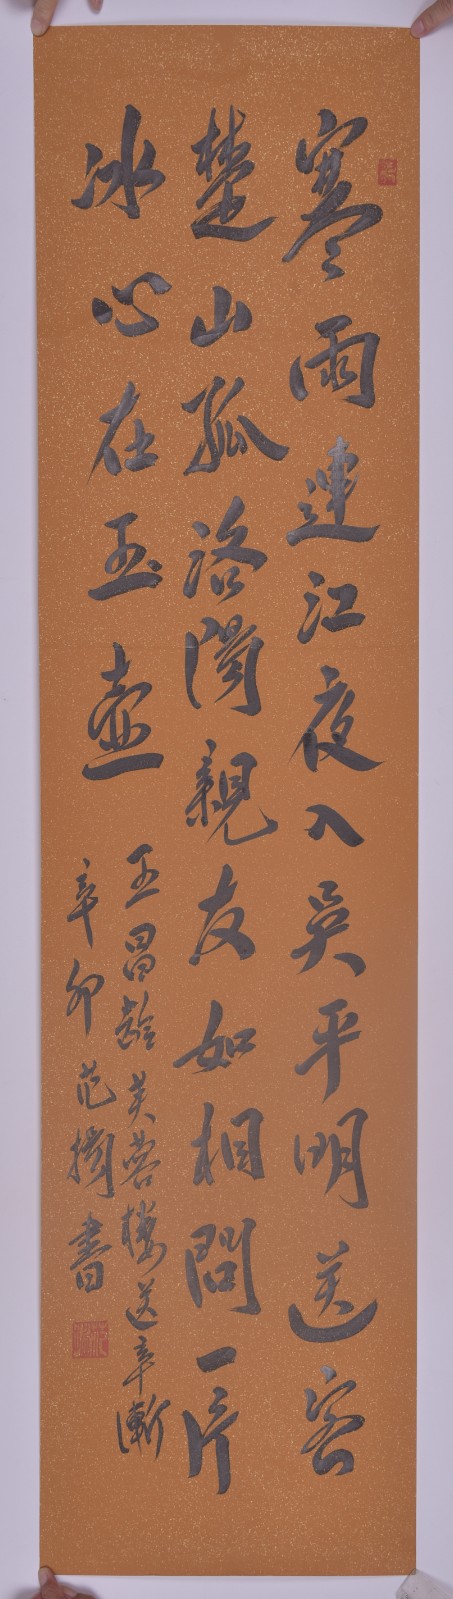 寒雨連江夜入吳平明送客
楚山孤洛陽親友如相問一片
冰心在玉壺
王昌齡芙蓉樓送辛漸
辛卯范書